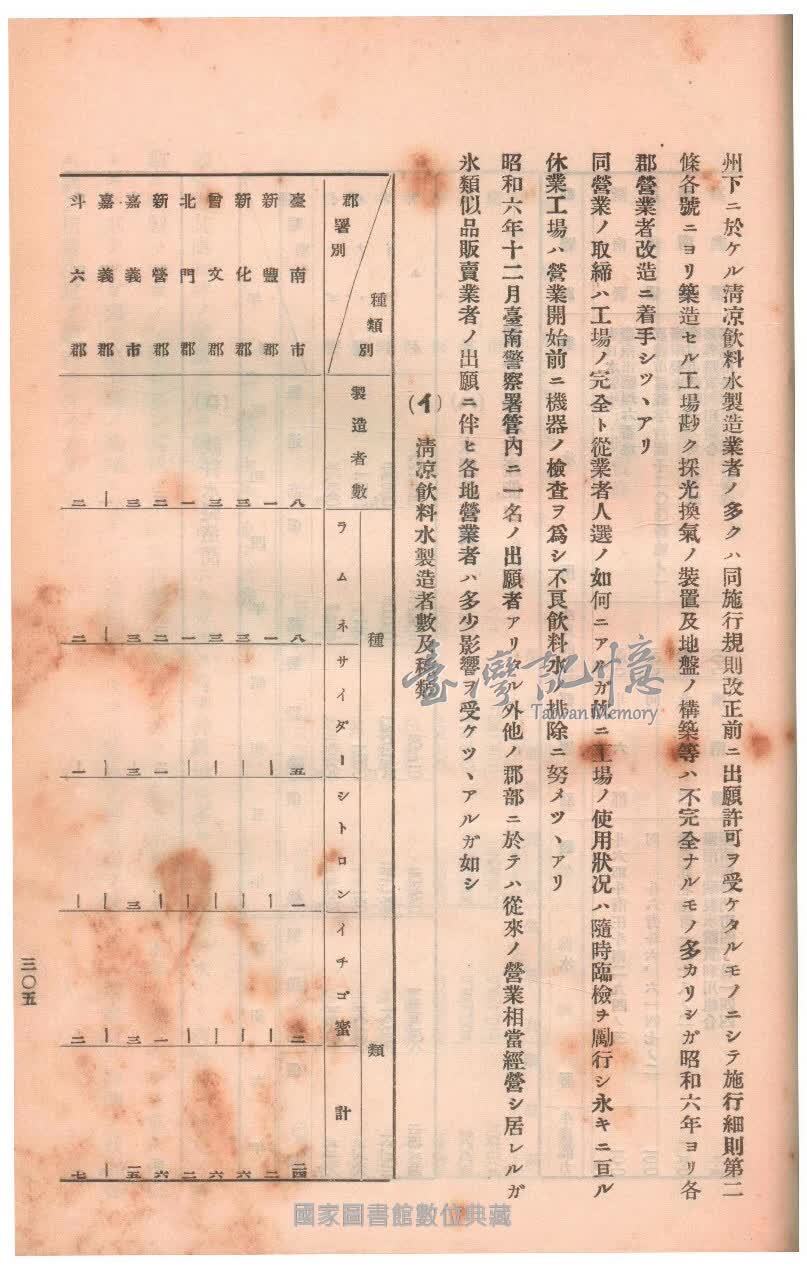 州下ニ於ケル淸凉飮料水製造業者ノ多クハ同施行規則改正前ニ出願許可ヲ受ケタルモノニシテ施行細則第二
條各號ニヨリ築造セル工場尠ク採光換氣ノ裝置及地盤ノ構築等ハ不完全ナルモノ多カリシガ昭和六年ヨリ各
郡營業者改造ニ着手シツヽアリ
同營業ノ取締ハ工場ノ完全ト從業者人選ノ如何ニアルガ故ニ工場ノ使用狀況ハ隨時臨檢ヲ勵行シ永キニ亘ル
休業工場ハ營業開始前ニ機器ノ檢查ヲ爲シ不良飮料水ノ排除ニ努メツヽアリ
昭和六年十二月臺南警察署管內ニ一名ノ出願者アリタル外他ノ郡部ニ於テハ從來ノ營業相當經營シ居レルガ
氷類似品販賣業者ノ出願ニ伴ヒ各地營業者ハ多少影響ヲ受ケツヽアルガ如シ
(イ) 淸凉飮料水製造者數及種類
郡署別 種類別 製造者數 種類 ラムネ サイダー シトロン イチゴ蜜 計
臺南市 八 八 五 一 二 二四
新豐郡 一 一 ー ー ー 二
新化郡 三 三 ー ー ー 六
曾文郡 三 三 ー ー ー 六
北門郡 一 一 ー ー ー 二
新營郡 二 二 二 一 一 六
嘉義市 三 三 三 三 ー 一五
嘉義郡 ー ー ー ー ー ー
斗六郡 二 二 一 ー 二 七
三〇五
臺灣記憶
Taiwan Memory
國家圖書館數位典藏